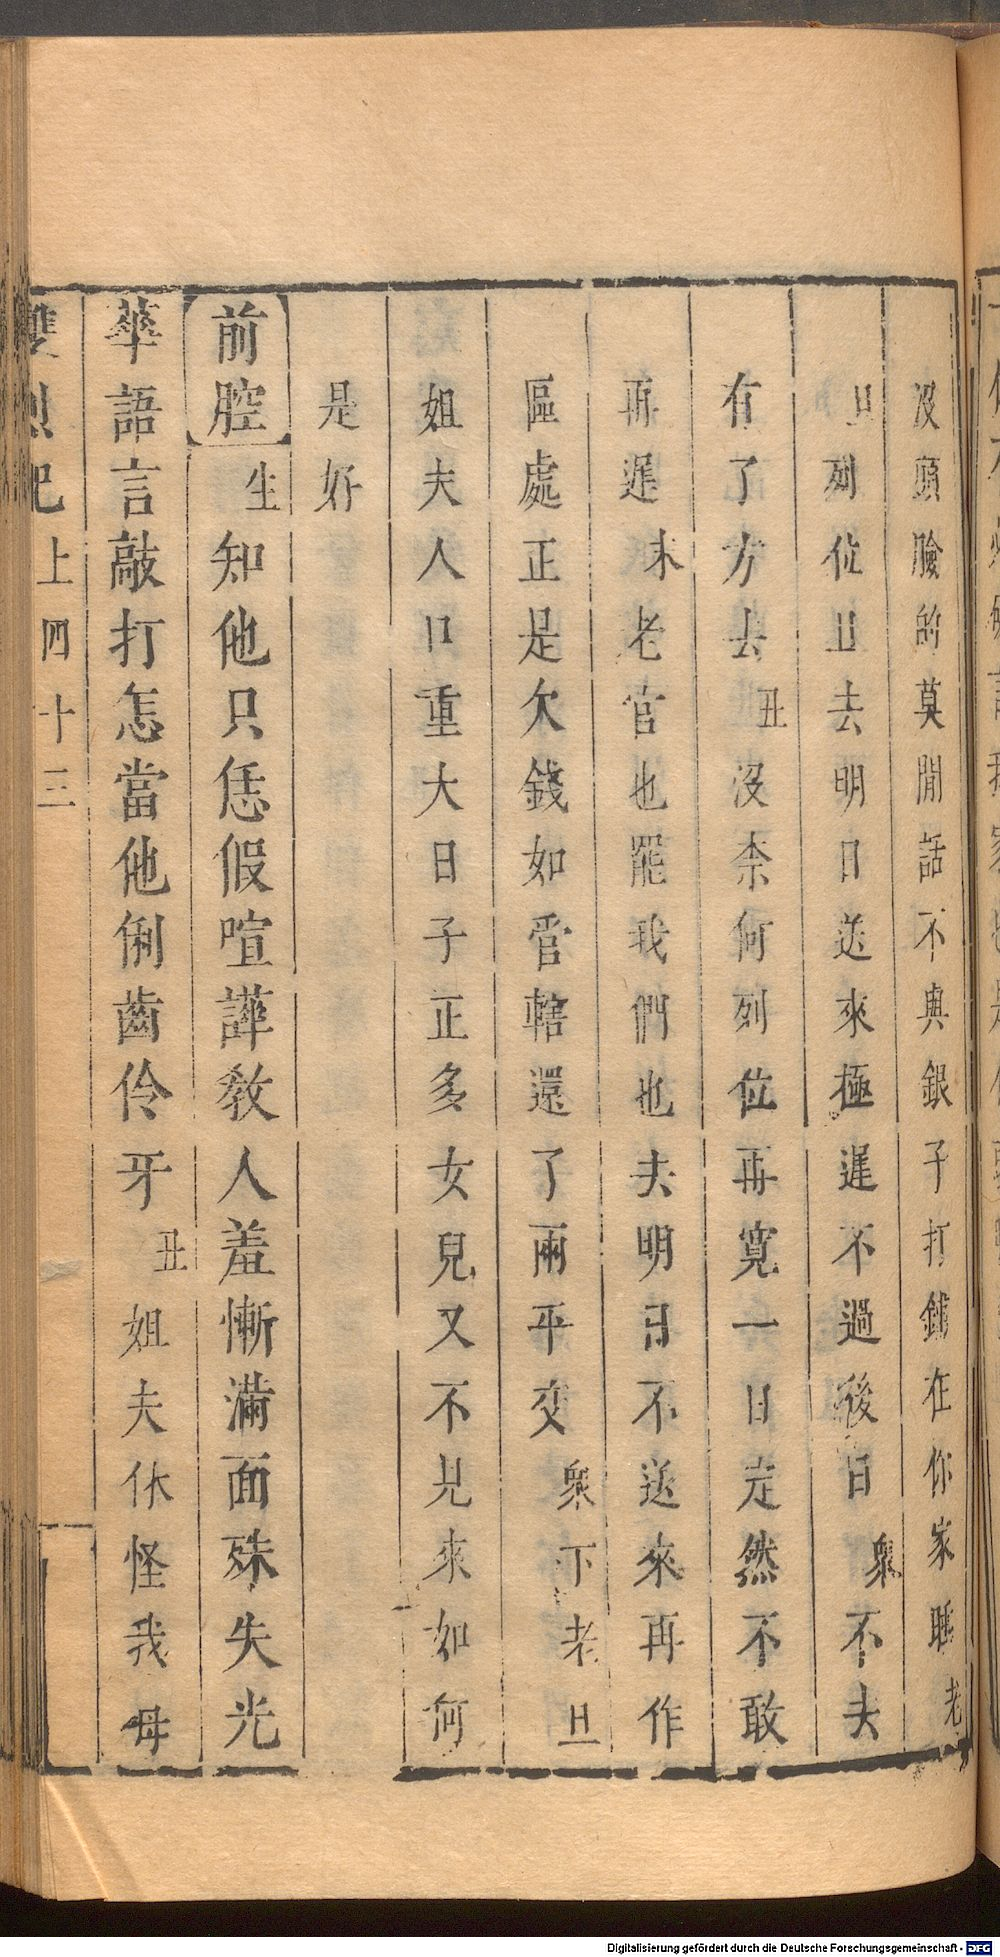 沒頭臉的莫閒話不與銀子打鋪在你家睡老
旦列位且去明日送來極遲不過後日衆不去
有了方去丑沒柰何列位再寬一日定然不敢
再遲末老官也罷我們也去明日不送來再作
區處正是欠錢如管轄還了兩平交衆下老旦
姐夫人口重大日子正多女兒又不見來如何
是好
前腔生知他只恁假喧譁敎人羞慚滿面殊失光
華語言敲打怎當他俐齒伶牙丑姐夫休怪我母
雙烈記上四十三
Digitalisierung gefördert durch die Deutsche Forschungsgemeinschaft - DFG